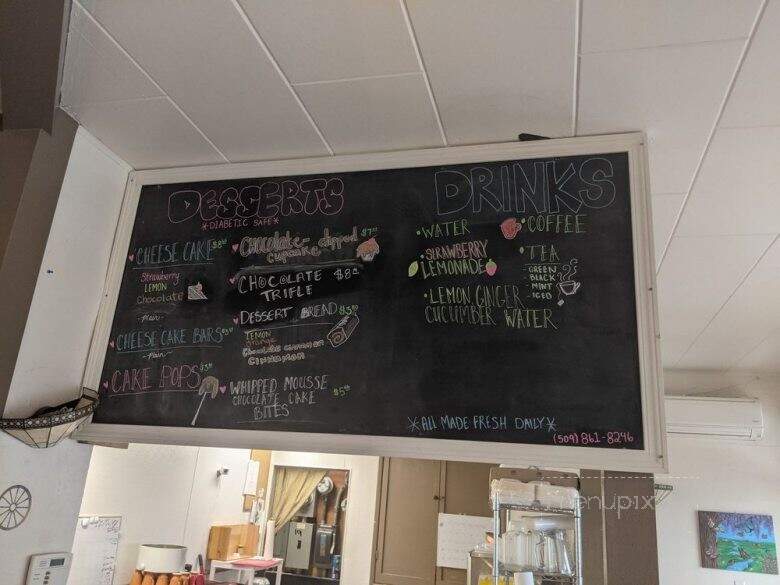 DESSERTS
*DIABETIC SAFE*
CHEESE CAKE
Strawberry
LEMON
Chocolate
-Plain-
CHEESE CAKE BARS
-Plain-
CAKE POPS
Chocolate-dipped
cupcake
CHOCOLATE
TRIFLE
DESSERT BREAD
LEMON
orange
Chocolate cinnamon
CINNAMON
WHIPPED MOUSSE
CHOCOLATE CAKE
BITES
DRINKS
• WATER
STRAWBERRY
LEMONADE
• LEMON GINGER
CUCUMBER WATER
• COFFEE
• TEA
- GREEN
BLACK
- MINT
- ICED
*ALL MADE FRESH DAILY*
(509) 861-8246
menupix